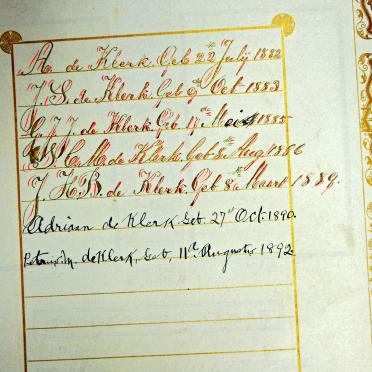 A. de Klerk. Geb 22ste Julij 1882
J. S. de Klerk. Geb 9de Oct 1883
C. J. J. de Klerk. Geb 17de Mei 1885
S. C. M. de Klerk. Geb 8ste Aug 1886
J. H. B. de Klerk. Geb 8ste Maart 1889.
Adriaan de Klerk. Geb. 27ste Oct. 1890.
de Klerk, Geb, 11de Augustus 1892.